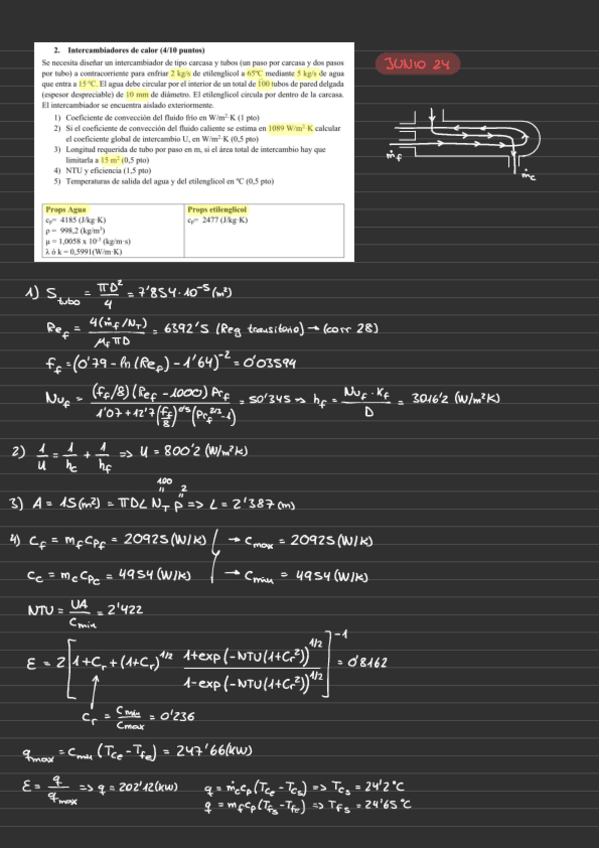 2. Intercambiadores de calor (4/10 puntos)
JUNIO 24
Se necesita diseñar un intercambiador de tipo carcasa y tubos (un paso por carcasa y dos pasos
por tubo) a contracorriente para enfriar 2 kg/s de etilenglicol a 65ºC mediante 5 kg/s de agua
que entra a 15 ºC. El agua debe circular por el interior de un total de 100 tubos de pared delgada
(espesor despreciable) de 10 mm de diámetro. El etilenglicol circula por dentro de la carcasa.
El intercambiador se encuentra aislado exteriormente.
1) Coeficiente de convección del fluido frío en W/m²·K (1 pto)
2) Si el coeficiente de convección del fluido caliente se estima en 1089 W/m²·K calcular
el coeficiente global de intercambio U, en W/m²·K (0,5 pto)
3) Longitud requerida de tubo por paso en m, si el área total de intercambio hay que
limitarla a 15 m² (0,5 pto)
4) NTU y eficiencia (1,5 pto)
5) Temperaturas de salida del agua y del etilenglicol en ºC (0,5 pto)
ṁf
ṁc
Props Agua
cp= 4185 (J/kg·K)
ρ = 998,2 (kg/m³)
μ = 1,0058 x 10⁻³ (kg/m·s)
λ ó k = 0,5991(W/m·K)
Props etilenglicol
cp= 2477 (J/kg·K)
1) S tubo = πD²/4 = 7'854·10⁻⁵ (m²)
Re_f = 4(ṁf/N_T)/μf πD = 6392'5 (Reg transitorio) → (corr 28)
f_f = (0'79 - ln(Re_f) - 1'64)⁻² = 0'03594
Nu_f = (f_f/8)(Re_f - 1000) Pr_f / 1'07 + 12'7 (f_f/8)^0'5 (Pr_f^2/3 - 1) = 50'345 ⇒ h_f = Nu_f · K_f / D = 3016'2 (W/m²K)
2) 1/U = 1/h_c + 1/h_f ⇒ U = 800'2 (W/m²K)
100 2
3) A = 15 (m²) = πDL N_T p ⇒ L = 2'387 (m)
4) C_f = m_f C_pf = 20925 (W/K) → C_max = 20925 (W/K)
C_c = m_c C_pc = 4954 (W/K) → C_min = 4954 (W/K)
NTU = UA/C_min = 2'422
ε = 2 [1 + C_r + (1+C_r)^1/2 1+exp(-NTU(1+C_r²))^1/2 / 1-exp(-NTU(1+C_r²))^1/2]⁻¹ = 0'8162
C_r = C_min/C_max = 0'236
q_max = C_min (T_ce - T_fe) = 247'66 (kW)
ε = q/q_max ⇒ q = 202'12 (kW) q = ṁ_c c_p (T_ce - T_cs) ⇒ T_cs = 24'2 °C
q = m_f c_p (T_fs - T_fe) ⇒ T_fs = 24'65 °C